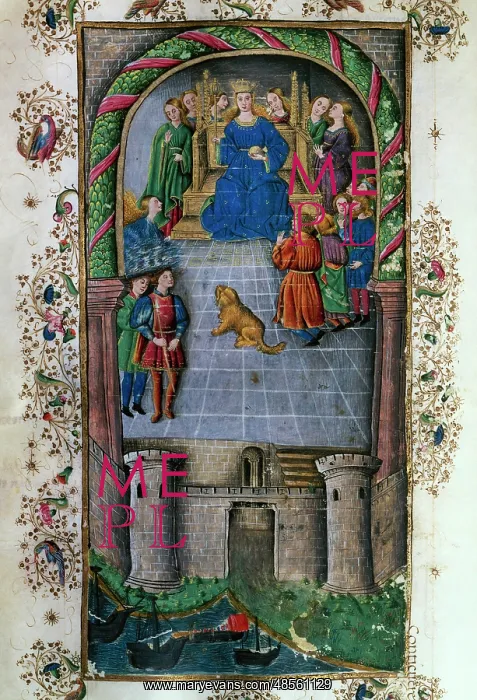 ME
PL
ME
PL
www.maryevans.com/48561129